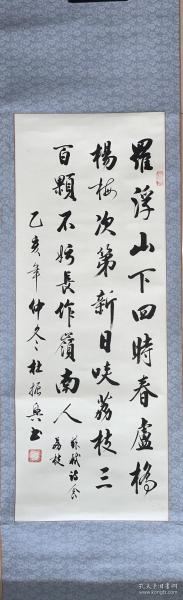 羅浮山下四時春盧橘
楊梅次第新日啖荔枝三
百顆不妨長作嶺南人
蘇軾詩食
荔枝
乙亥年仲冬杜振興書